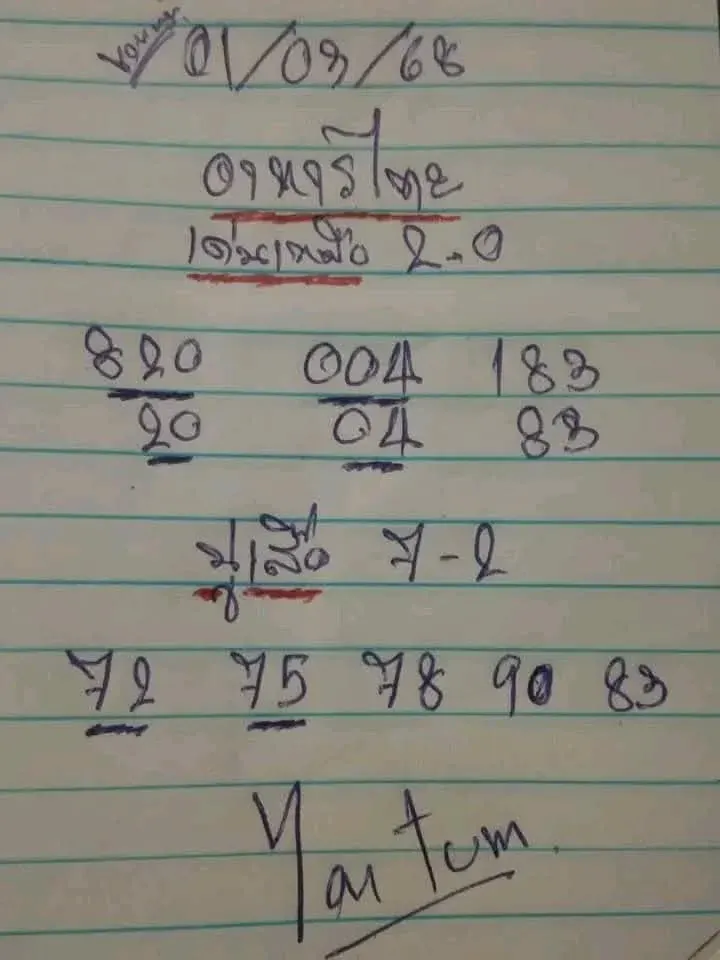 01/03/68
อาหารไทย
เด่นเหนือ 2.0
820 004 183
20 04 83
7-2
72 75 78 90 83